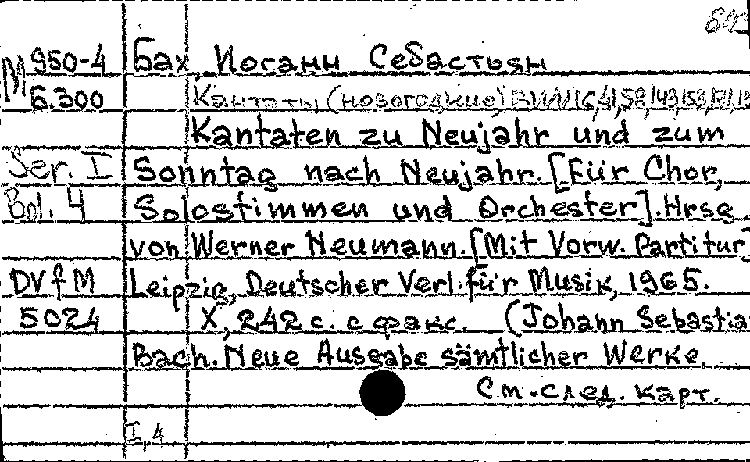 М 950-4 Бах, Иоганн Себастьян
6.300 Кантаты (новогодние) BWV 16, 41, 58, 143, 153, 171,
Kantaten zu Neujahr und zum
Ser. I Sonntag nach Neujahr. [Für Chor,
Bd. 4 Solostimmen und Orchester]. Hrsg.
von Werner Neumann. [Mit Vorw. Partitur]
DVfM Leipzig, Deutscher Verl. für Musik, 1965.
5024 X, 242 с. с факс. (Johann Sebastia
Bach. Neue Ausgabe sämtlicher Werke.
См. след. карт.
I,4